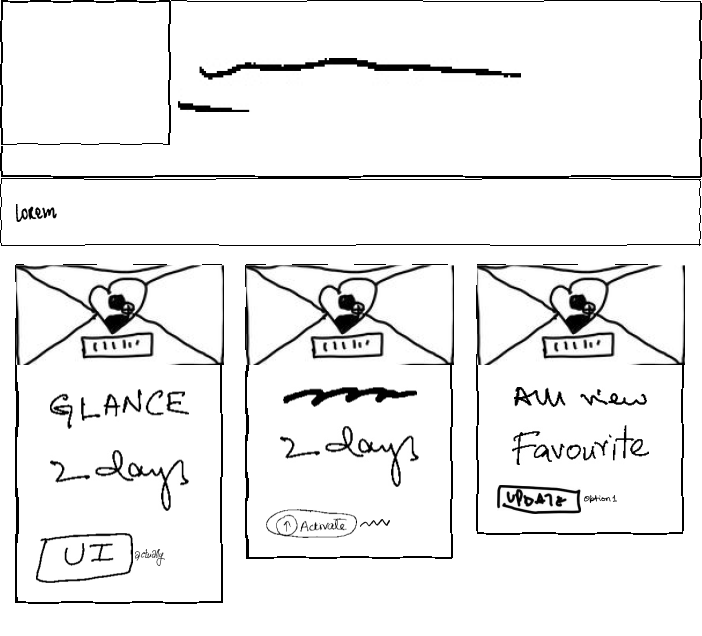 Lorem
GLANCE
2 days
UI actually
2 days
Activate
All view
Favourite
UPDATE Option 1